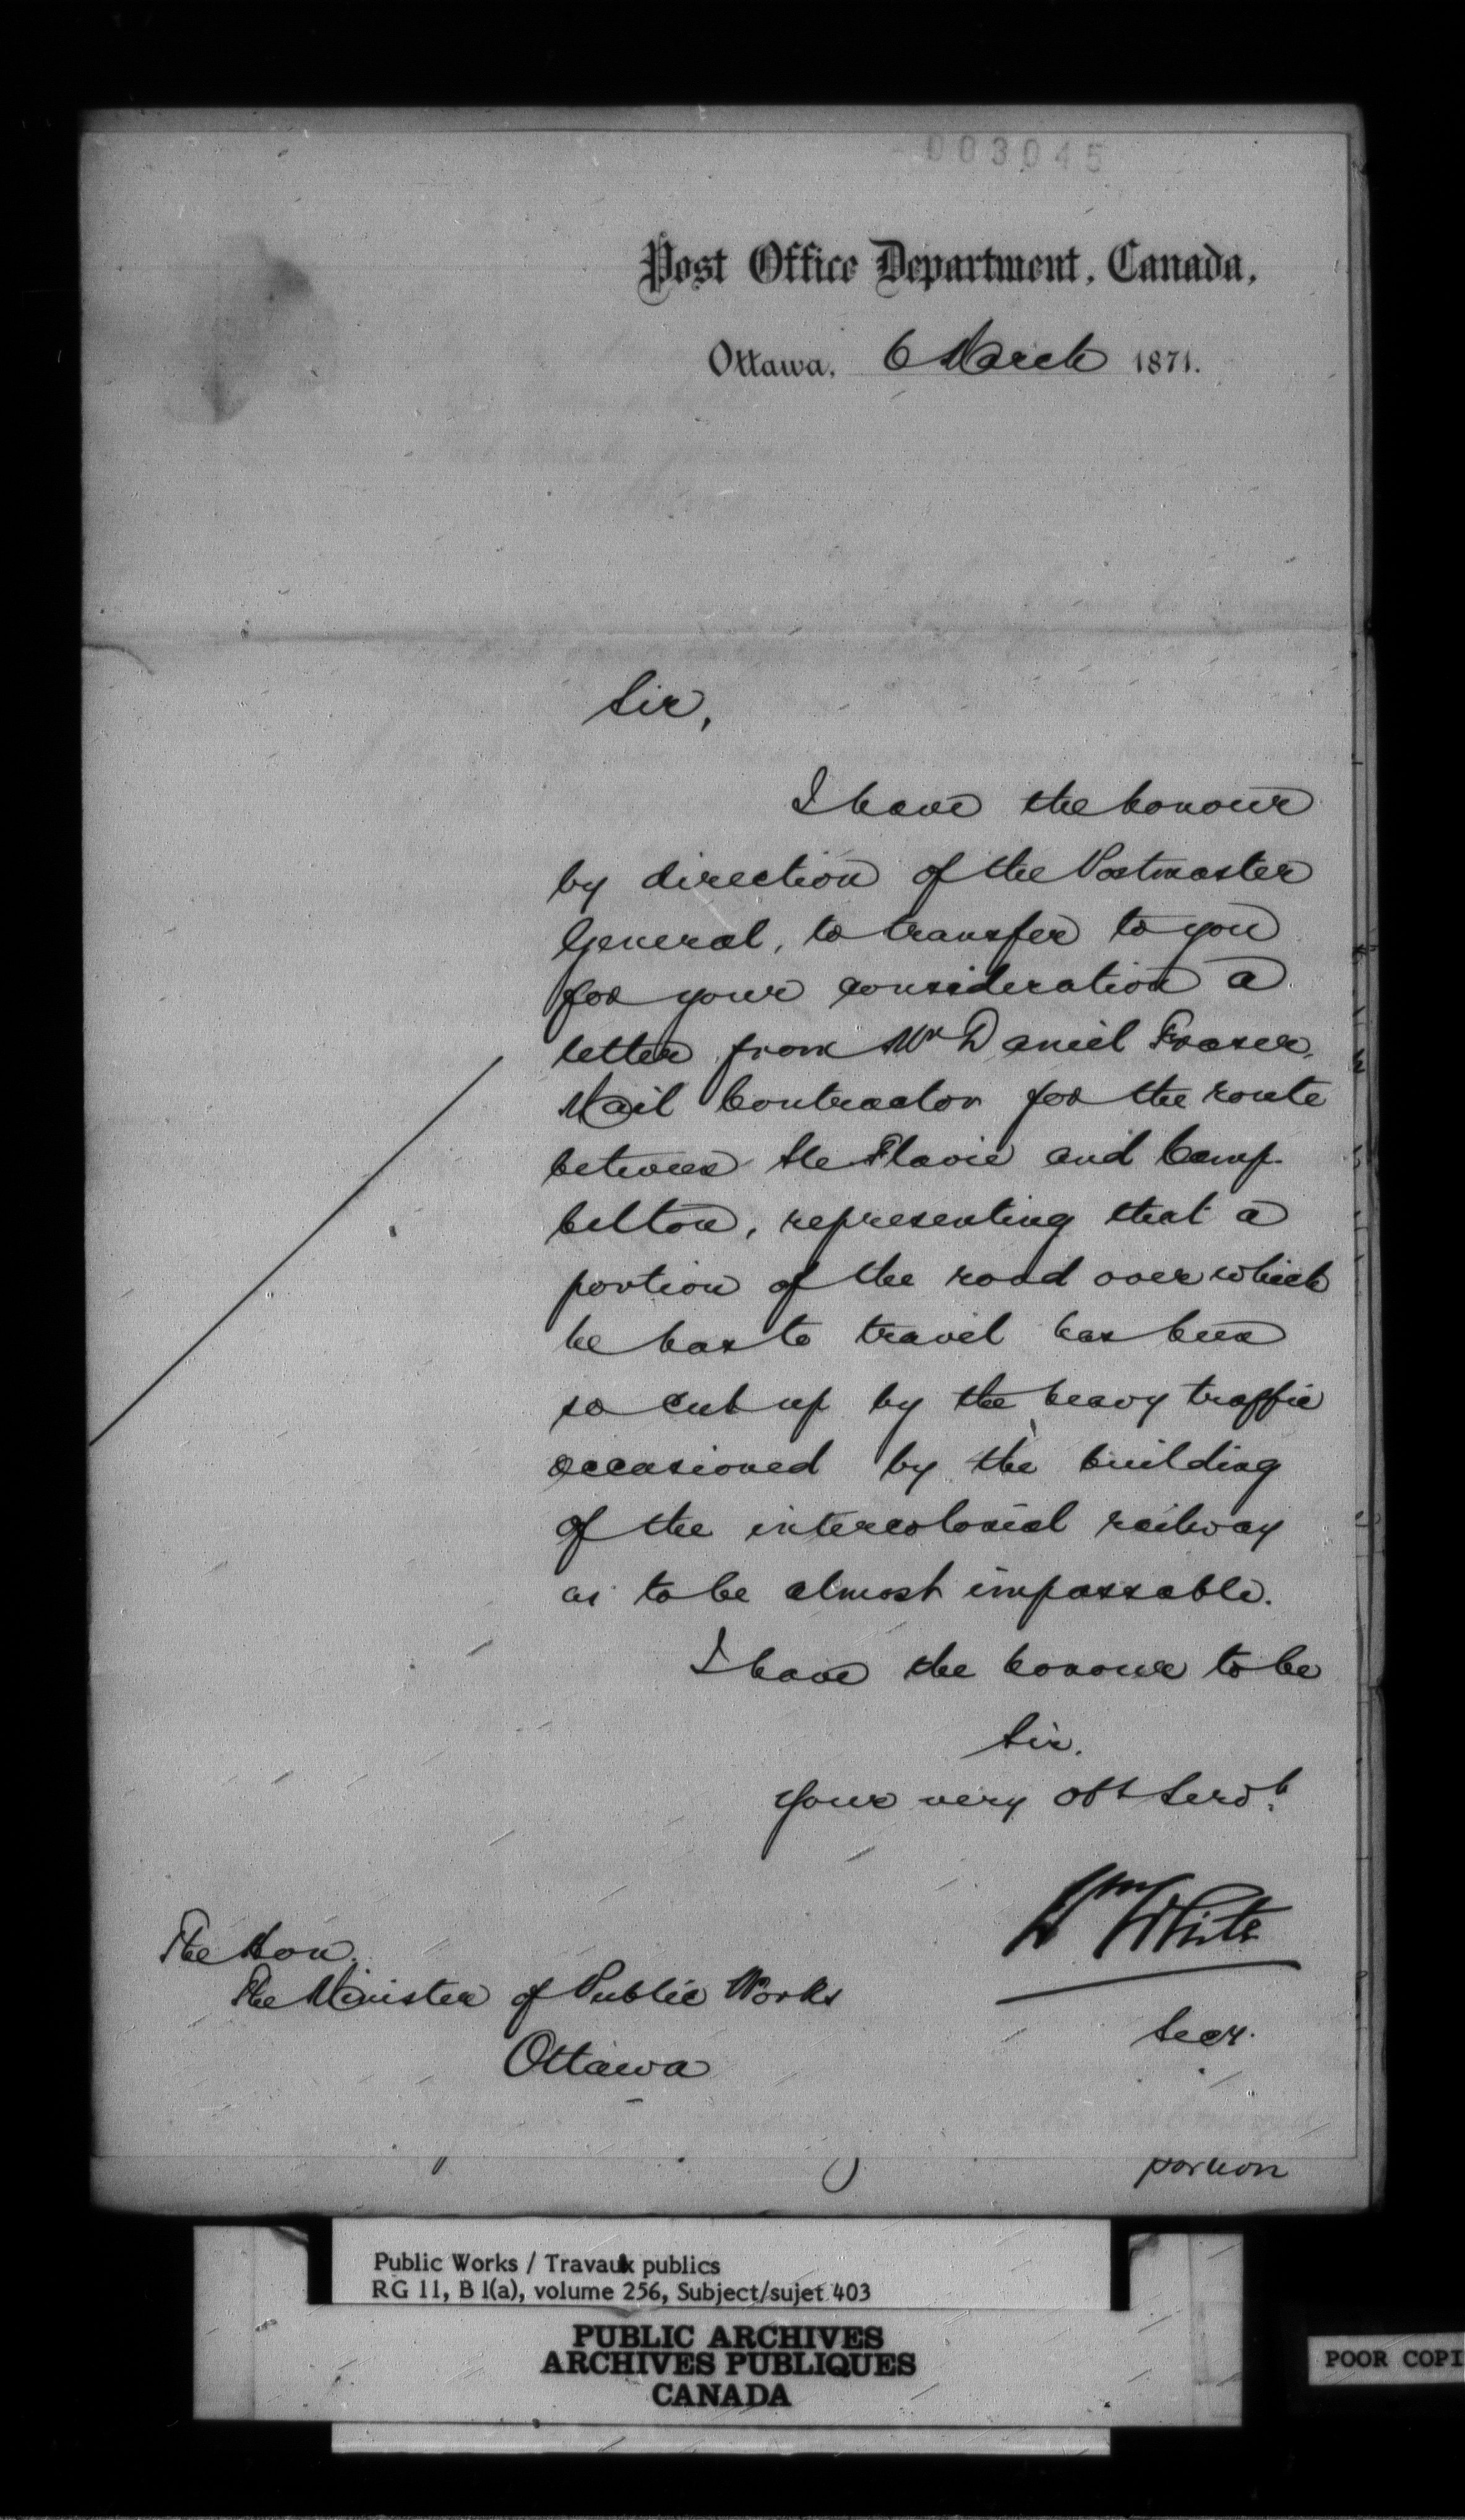 003045
Post Office Department, Canada,
Ottawa, 6 March 1871.
Sir,
I have the honour
by direction of the Postmaster
General, to transfer to you
for your consideration a
letter from Mr Daniel Fraser,
Mail Contractor for the route
between Ste Flavie and Camp
belton, representing that a
portion of the road over which
he has to travel has been
so cut up by the heavy traffic
occasioned by the building
of the intercolonial railway
as to be almost impassable.
I have the honour to be
Sir.
Your very Obt Servt.
Wm White
Secy.
The Hon.
The Minister of Public Works
Ottawa
portion
Public Works / Travaux publics
RG 11, B 1(a), volume 256, Subject/sujet 403
PUBLIC ARCHIVES
ARCHIVES PUBLIQUES
CANADA
POOR COPI